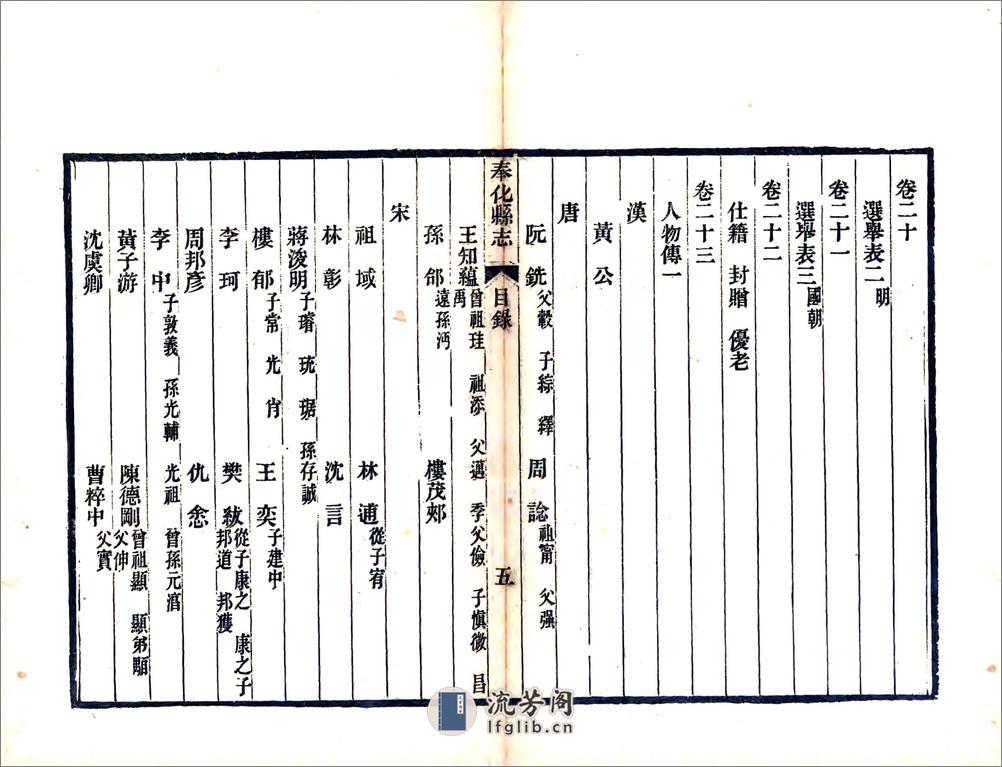 卷二十
選舉表二 明
卷二十一
選舉表三 國朝
卷二十二
仕籍 封贈 優老
卷二十三
人物傳一
漢
黃公
唐
阮銑 父轂 子綜 繹 周諗 祖甯 父强
奉化縣志 目錄 五
王知蘊 曾祖珪 祖添 父邁 季父儉 子愼徽 昌禹
孫郃 遠孫沔 樓茂郟
宋
祖域 林逋 從子宥
林彰 沈言
蔣浚明 子璿 珫 琚 孫存誠
樓郁 子常 光 肖 王奕 子建中
李珂 樊紱 從子康之 康之子邦道 邦獲
周邦彥 仇悆
李中 子敦義 孫光輔 光祖 曾孫元
黃子游 陳德剛 曾祖顯 顯弟顒 父伸
沈虞卿 曹粹中 父實
流芳阁
lfglib.cn